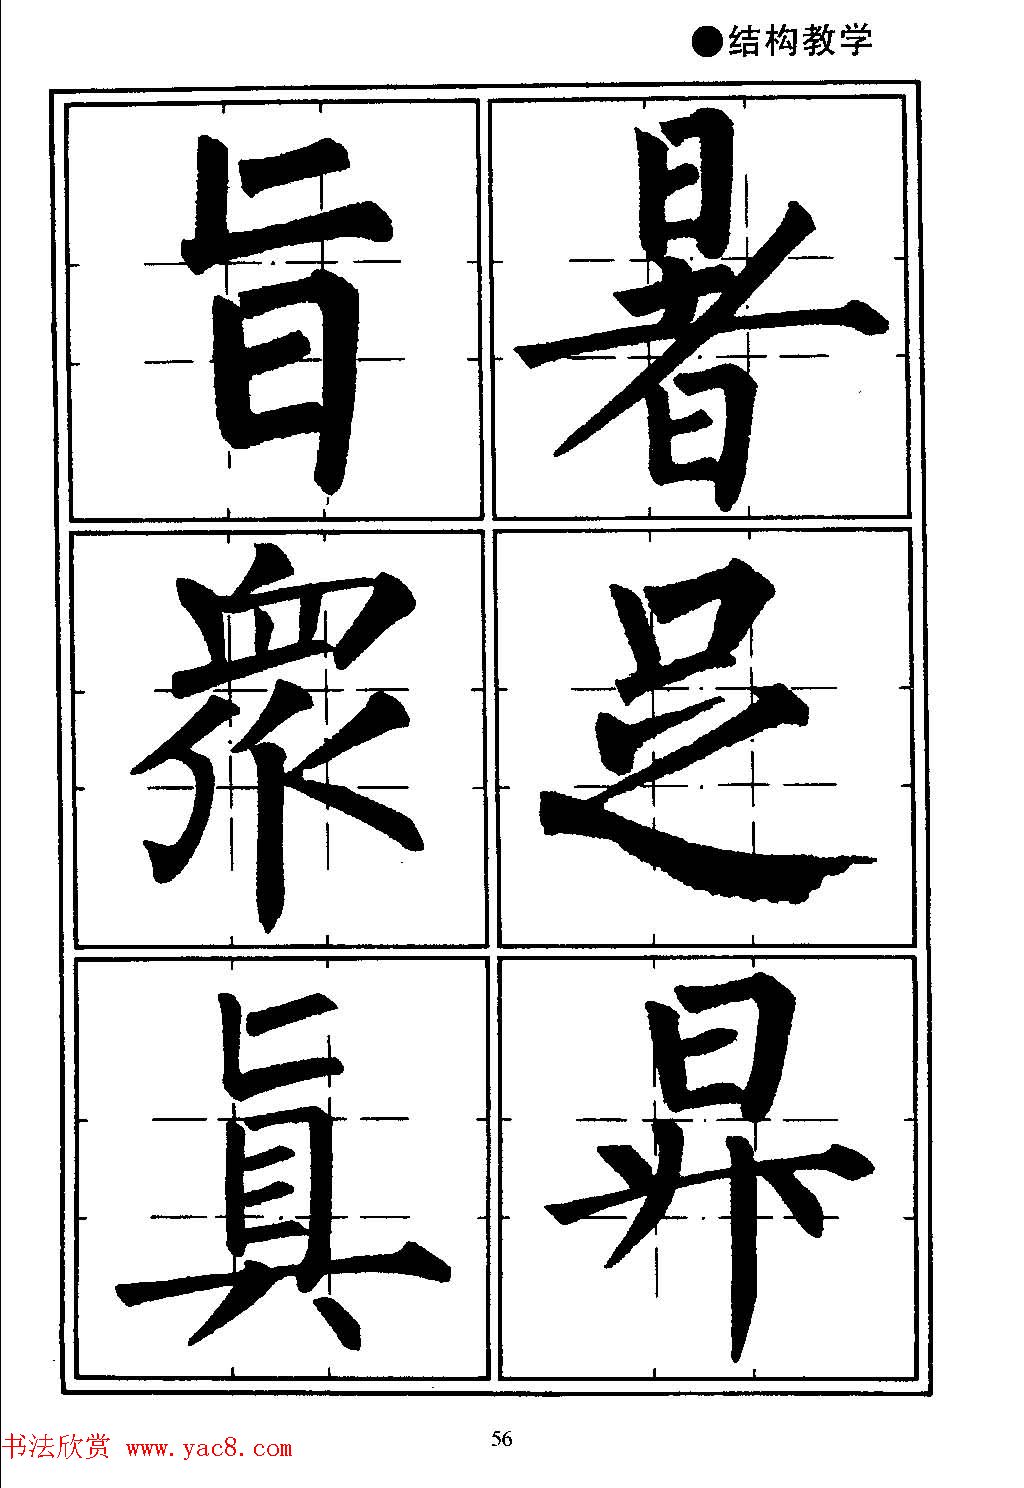 ●结构教学
暑足昇
旨衆真
56
书法欣赏 www.yac8.com